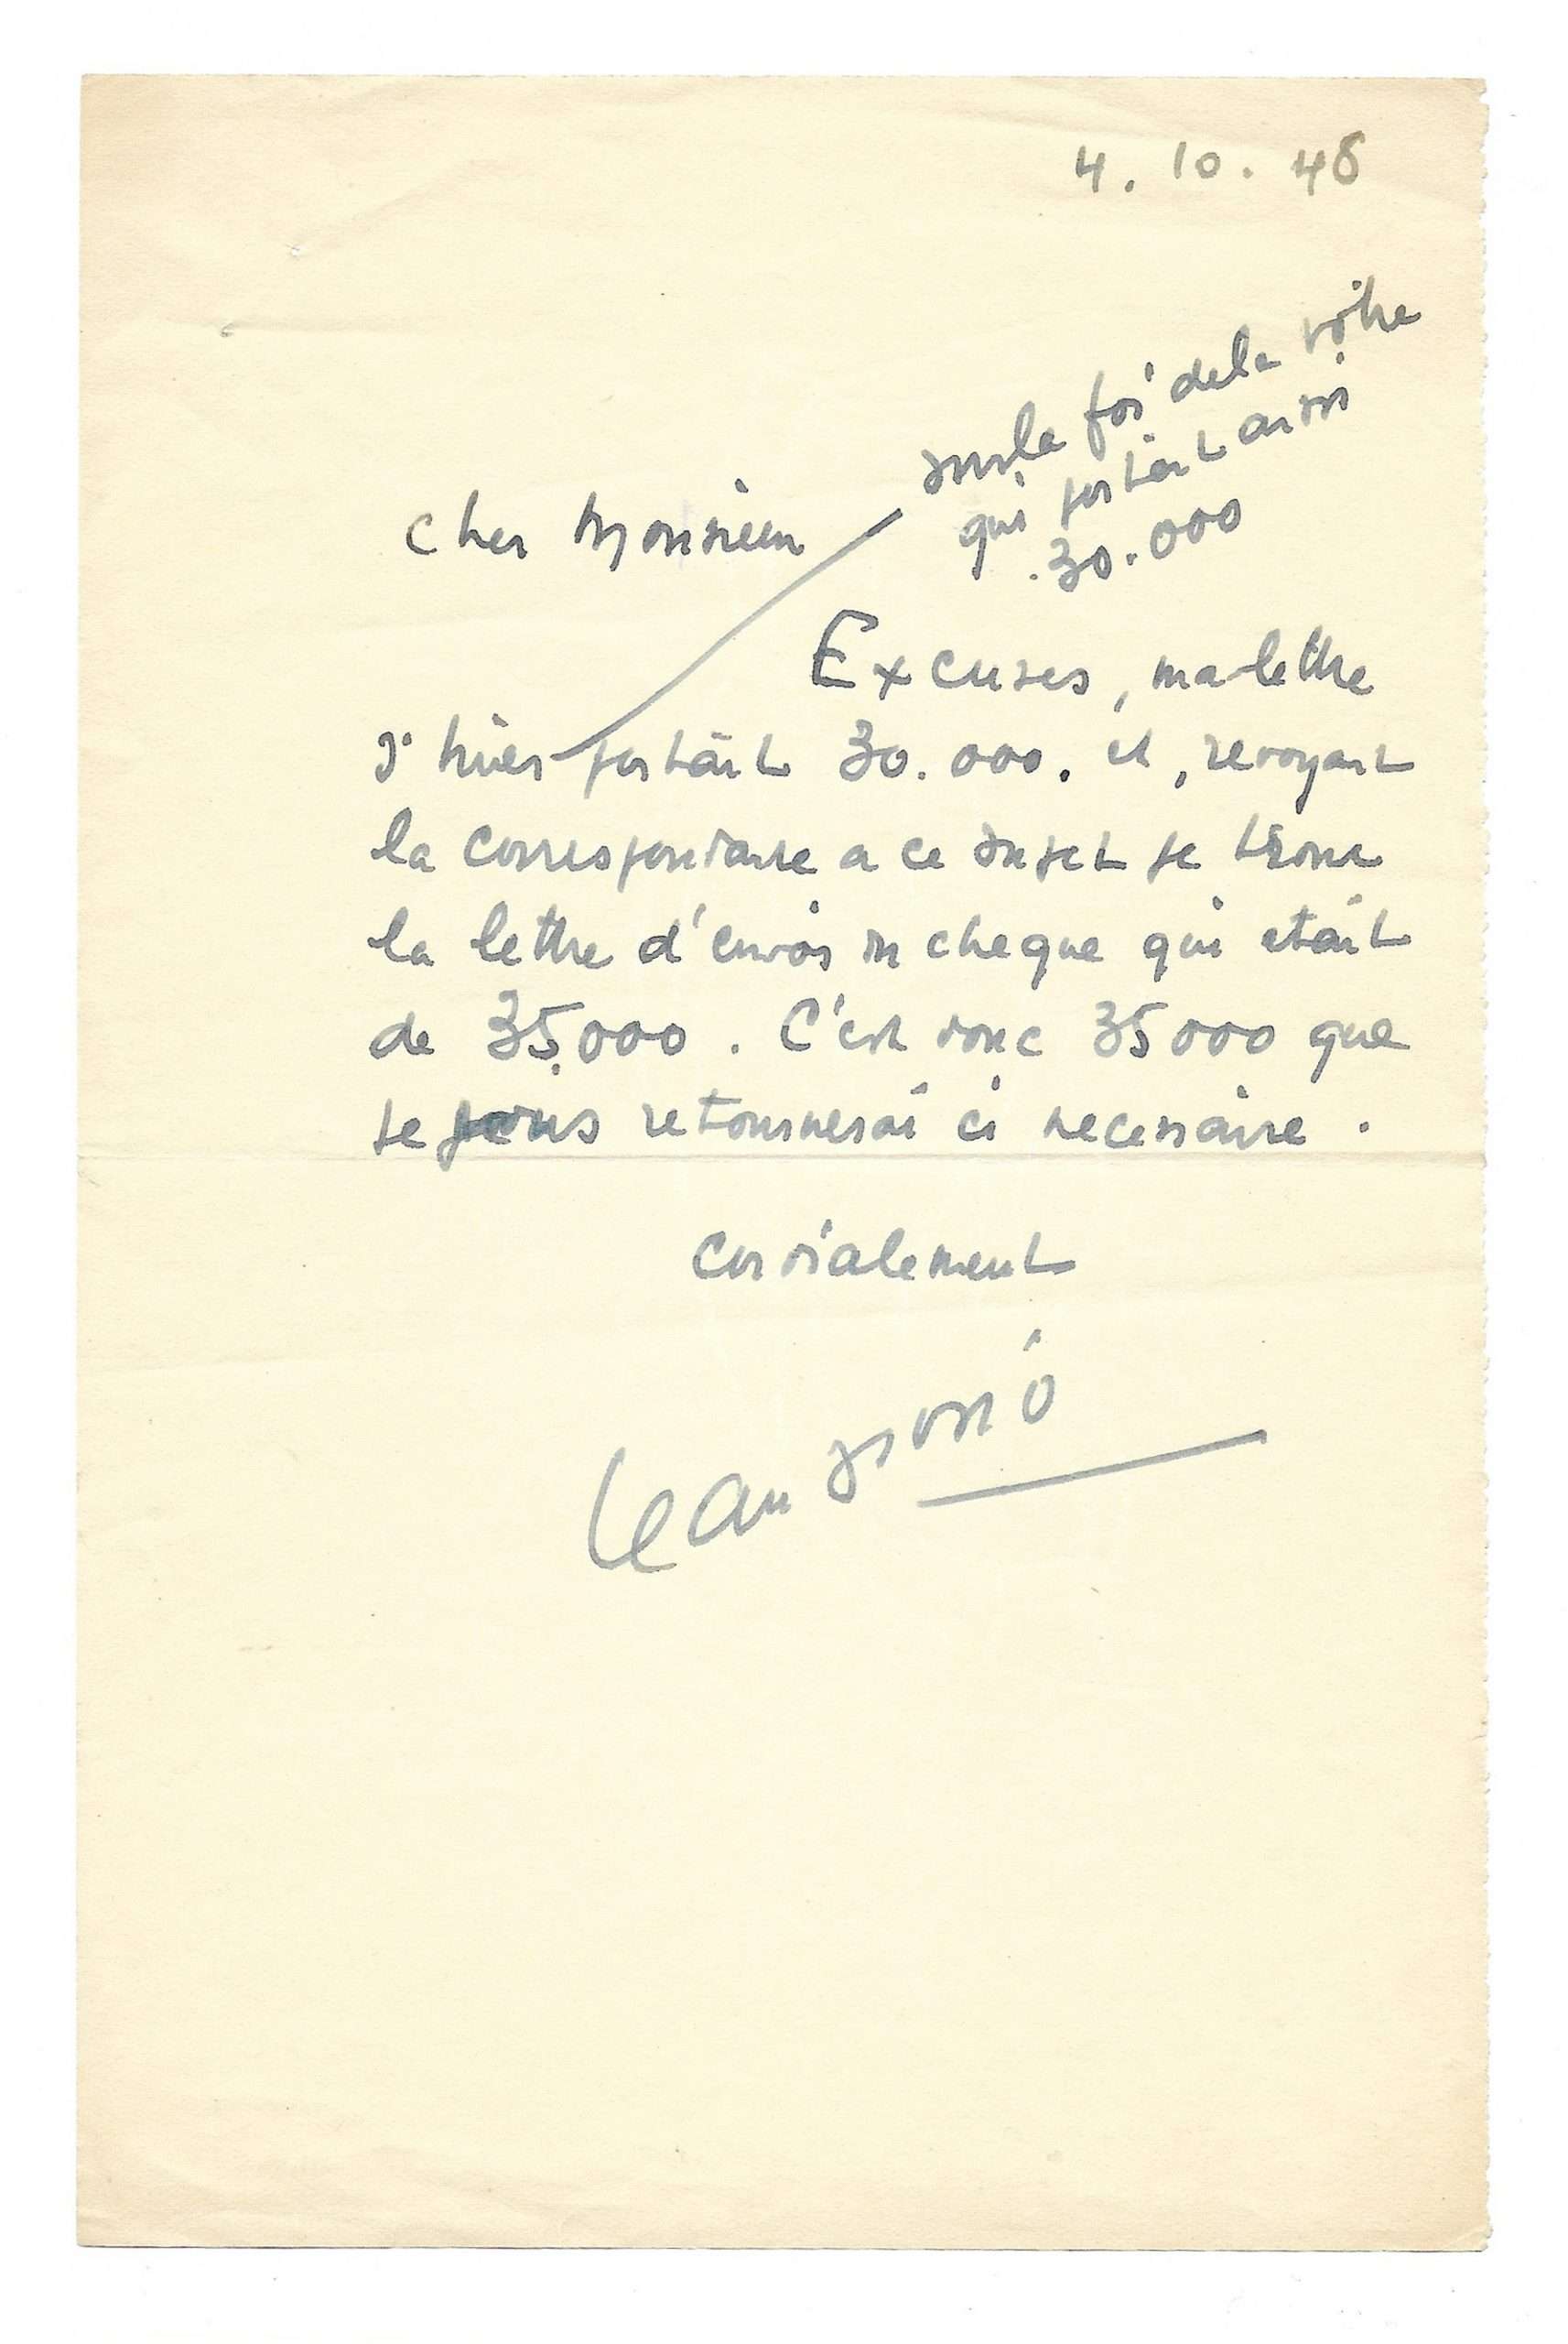 4. 10. 48
sur la foi de la vôtre
qui portait aussi
30.000
Cher Monsieur
Excuses, ma lettre
d'hier portait 30.000. et, revoyant
la correspondance a ce sujet je trouve
la lettre d'envoi du cheque qui etait
de 35.000. C'est donc 35000 que
je vous retournerai ci necessaire.
Cordialement
Jean Giono